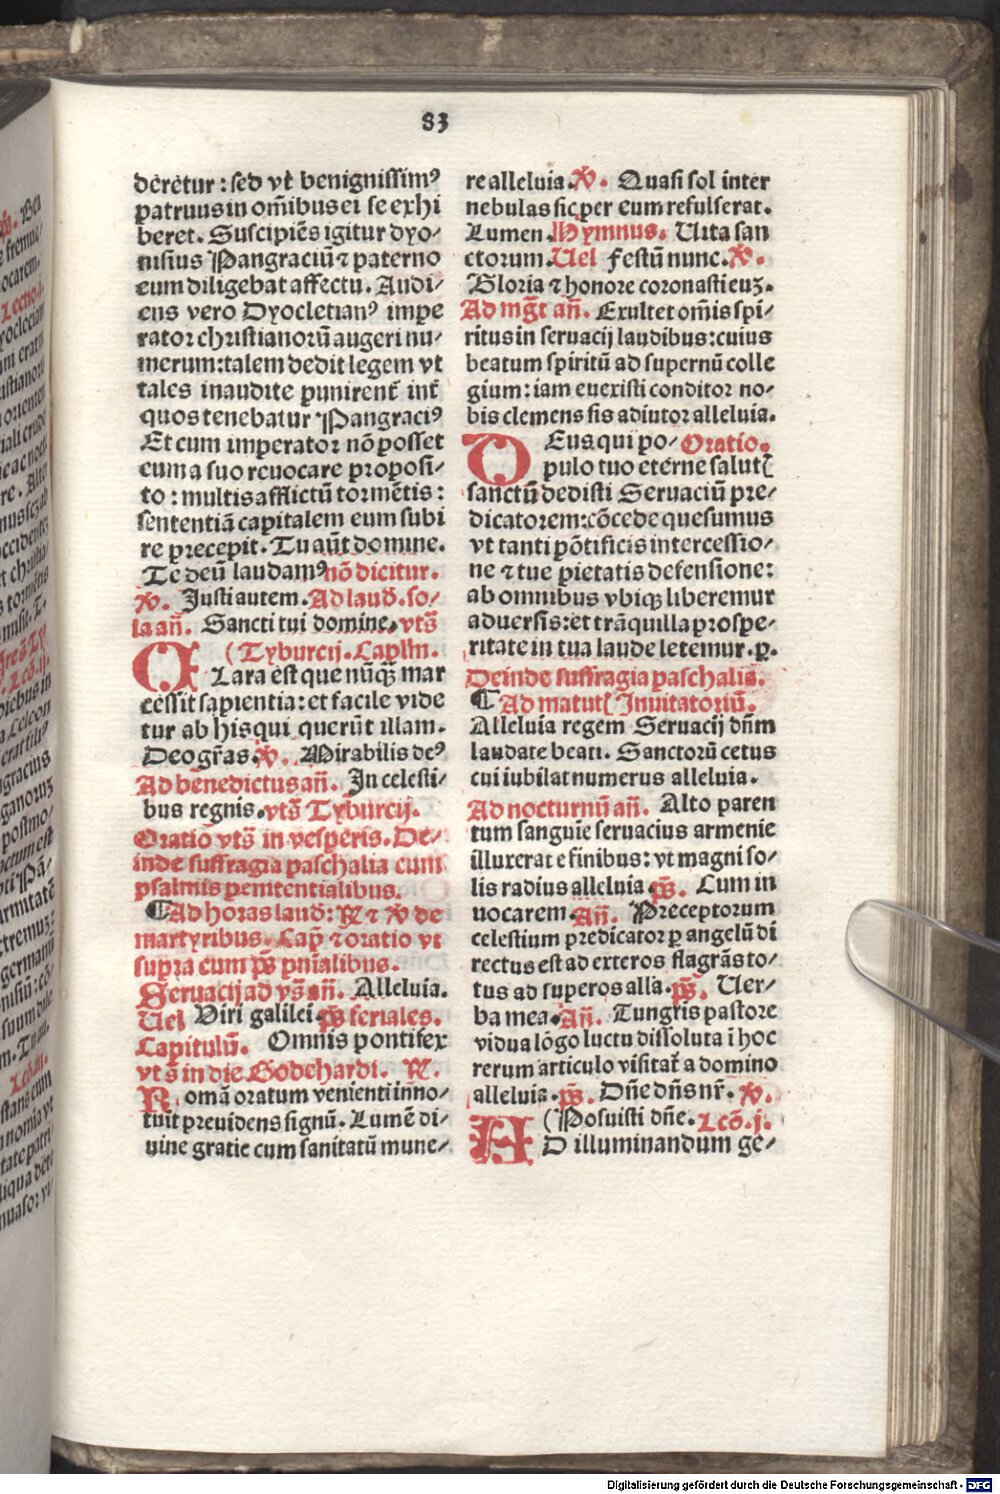 83
derētur : sed vt benignissimꝰ
patruus in om̄ibus ei se exhi
beret. Suscipiēs igitur dyo⸗
nisius Pangraciū ⁊ paterno
eum diligebat affectu. Audi⸗
ens vero Dyocletianꝰ impe
rator christianorū augeri nu⸗
merum: talem dedit legem vt
tales inaudite punirent̄ int̄
quos tenebatur Pangraciꝰ
Et cum imperator nō posset
eum a suo reuocare proposi⸗
to : multis afflictū tormētis :
sententiā capitalem eum subi
re precepit. Tu aūt domine.
Te deū laudamꝰ nō dicitur.
℣. Justi autem. Ad laud̄. so⸗
la an̄. Sancti tui domine. vts̄
( Tyburcij. Caplm̄.
CLara est que nūqꝫ mar
cessit sapientia: et facile vide
tur ab his qui querūt illam.
Deo gr̄as. ℣. Mirabilis deꝰ
Ad benedictus an̄. In celesti⸗
bus regnis. vts̄ Tyburcij.
Oratio vts̄ in vesperis. De⸗
inde suffragia paschalia cum
psalmis penitentialibus.
¶Ad horas laud̄: ℟ ⁊ ℣ de
martyribus. Cap̄ ⁊ oratio vt
supra cum ps̄ pn̄ialibus.
Seruacij ad vs̄ an̄. Alleluia.
Uel Viri galilei. ps̄ feriales.
Capitulū. Omnis pontifex
vt s̄ in die Godehardi. ℟.
Romā oratum venienti inno⸗
tuit preuidens signū. Lumē di⸗
uine gratie cum sanitatū mune⸗
re alleluia. ℣. Quasi sol inter
nebulas sic per eum refulserat.
Lumen. Hymnus. Uita san
ctorum. Uel Festū nunc. ℣.
Gloria ⁊ honore coronasti euꝫ.
Ad mḡt an̄. Exultet om̄is spi⸗
ritus in seruacij laudibus: cuius
beatum spiritū ad supernū colle
gium: iam euexisti conditor no⸗
bis clemens sis adiutor alleluia.
DEus qui po⸗ Oratio.
pulo tuo eterne salutꝭ
sanctū dedisti Seruaciū pre⸗
dicatorem: cōcede quesumus
vt tanti pōtificis intercessio⸗
ne ⁊ tue pietatis defensione:
ab omnibus vbiqꝫ liberemur
aduersis: et trāquilla prospe⸗
ritate in tua laude letemur. ꝑ.
Deinde suffragia paschalia.
¶Ad matutꝭ Inuitatoriū.
Alleluia regem Seruacij dn̄m
laudate beati. Sanctorū cetus
cui iubilat numerus alleluia.
Ad nocturnū an̄. Alto paren
tum sanguīe seruacius armenie
illuxerat e finibus: vt magni so⸗
lis radius alleluia. ps̄. Cum in
uocarem. An̄. Preceptorum
celestium predicator ꝑ angelū di
rectus est ad exteros flagrās to⸗
tus ad superos alla. ps̄. Uer⸗
ba mea. An̄. Tungris pastore
vidua lōgo luctu dissoluta ī hoc
rerum articulo visitat̄ a domino
alleluia. ps̄. Dn̄e dn̄s nr̄. ℣.
( Posuisti dn̄e. Lcō. j.
AD illuminandum ge⸗
Digitalisierung gefördert durch die Deutsche Forschungsgemeinschaft - DFG